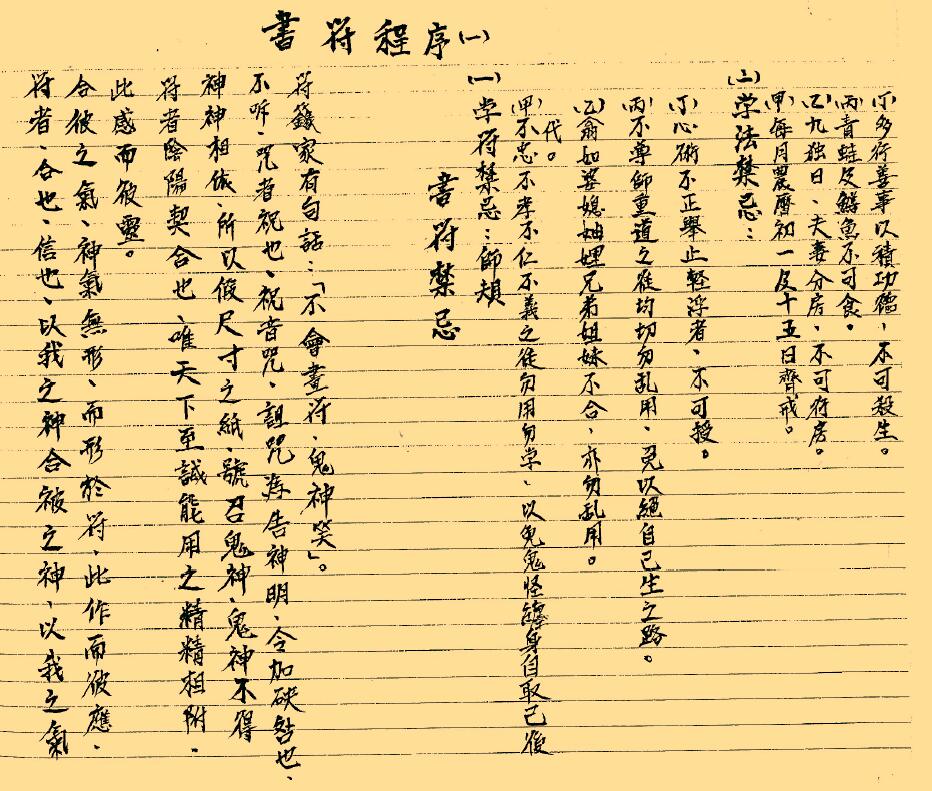 書符程序(一)
符者、合也、信也、以我之神合被之神、以我之氣
合彼之氣、神氣無形、而形於符、此作而彼應、
此感而彼靈。
符者陰陽契合也、唯天下至誠能用之精精相附.
神神相依、所以假尺寸之紙、號召鬼神、鬼神不得
不吓、咒者祝也、祝者咒、詛咒祷告神明、令加殃咎也、
符籙家有句話:「不會畫符、鬼神笑」。
書符禁忌
(一)学符禁忌:師規
(甲)不忠不孝不仁不義之徒勿用勿学、以免鬼怪纏身自取已後
代。
(乙)翁如婆媳妯娌兄弟姐妹不合、亦勿乱用。
(丙)不尊師重道之徒均切勿乱用、免以絕自己生之路。
(丁)心術不正舉止輕浮者、不可授。
(二)学法禁忌:
(甲)每月農曆初一及十五日齊戒。
(乙)九独日、夫妻分房、不可行房。
(丙)青蛙及鱔魚不可食。
(丁)多行善事以積功德、不可殺生。